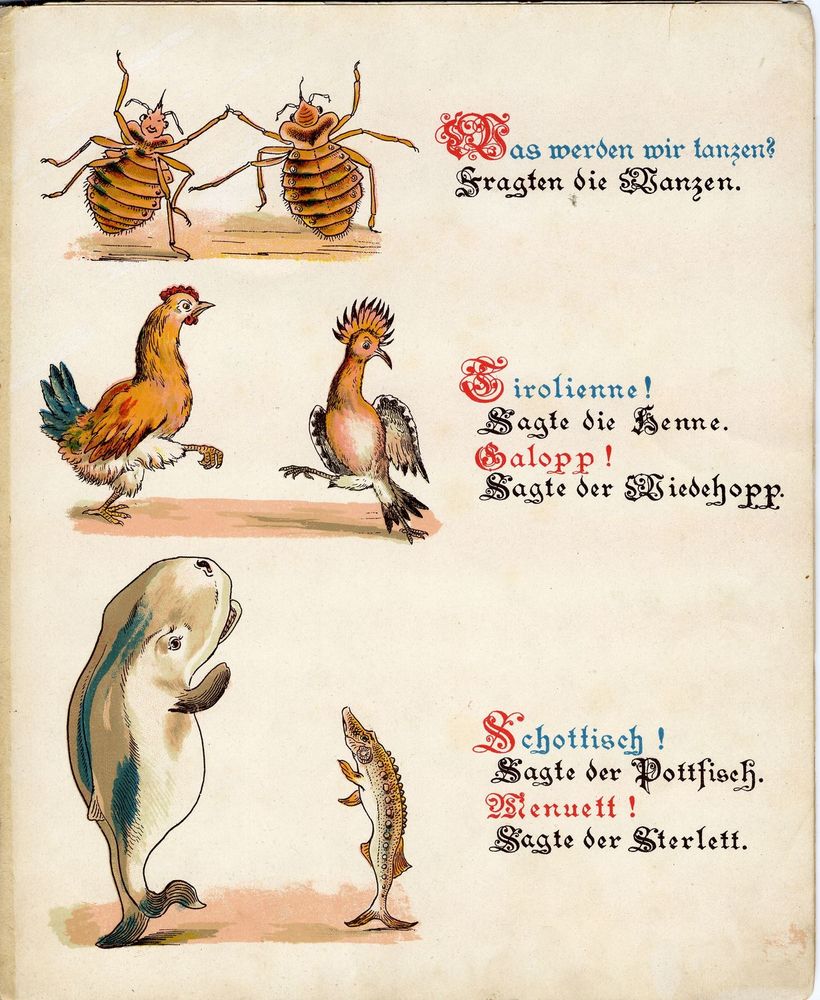 Was werden wir tanzen?
Fragten die Wanzen.
Tirolienne!
Sagte die Henne.
Galopp!
Sagte der Wiedehopp.
Schottisch!
Sagte der Pottfisch.
Menuett!
Sagte der Sterlett.